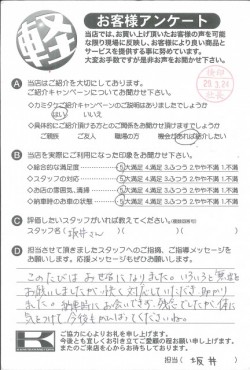 軽
お客様アンケート
当店では、お買い上げ頂いたお客様の声を可能
な限り現場に反映し、お客様により良い商品と
サービスを提供する事に努めています。
大変お手数ですが是非お声をお聞かせ下さい。
A 当店はご紹介を大切にしております。
ご紹介キャンペーンについてお聞かせ下さい。
◇カミタケご紹介キャンペーンのご説明はありましたでしょうか
はい いいえ
◇具体的にご紹介頂ける方との関係をお聞かせ頂けますでしょうか
ご親族 ご友人 職場の方 機会があれば紹介したい
B 当店を実際にご利用になった印象をお聞かせ下さい。
◇総合的な満足度 5.大満足 4.満足 3.ふつう 2.やや不満 1.不満
◇スタッフの対応 5.大満足 4.満足 3.ふつう 2.やや不満 1.不満
◇お店の雰囲気、清掃 5.大満足 4.満足 3.ふつう 2.やや不満 1.不満
◇納車時のお車の状態 5.大満足 4.満足 3.ふつう 2.やや不満 1.不満
C 評価したいスタッフがいれば教えてください。(複数回答可)
スタッフ名( 坂井さん )
D 担当させて頂きましたスタッフへのご指摘、ご信頼メッセージを
お願いします。今後の応援メッセージ、ぜひお聞かせ下さい。
このたびはお世話になりました。いろいろと無理を
お願いしましたが快く対応していただき助かり
ました。納車時にお会いできず残念でしたが体に
気をつけて今後もがんばってくださいね。
ご協力に心よりお礼を申し上げます。
今後とも宜しくお引き立てご愛顧の程お願い申し上げます。
またのご来店を心からお待ちしております。
担当( 坂井 )